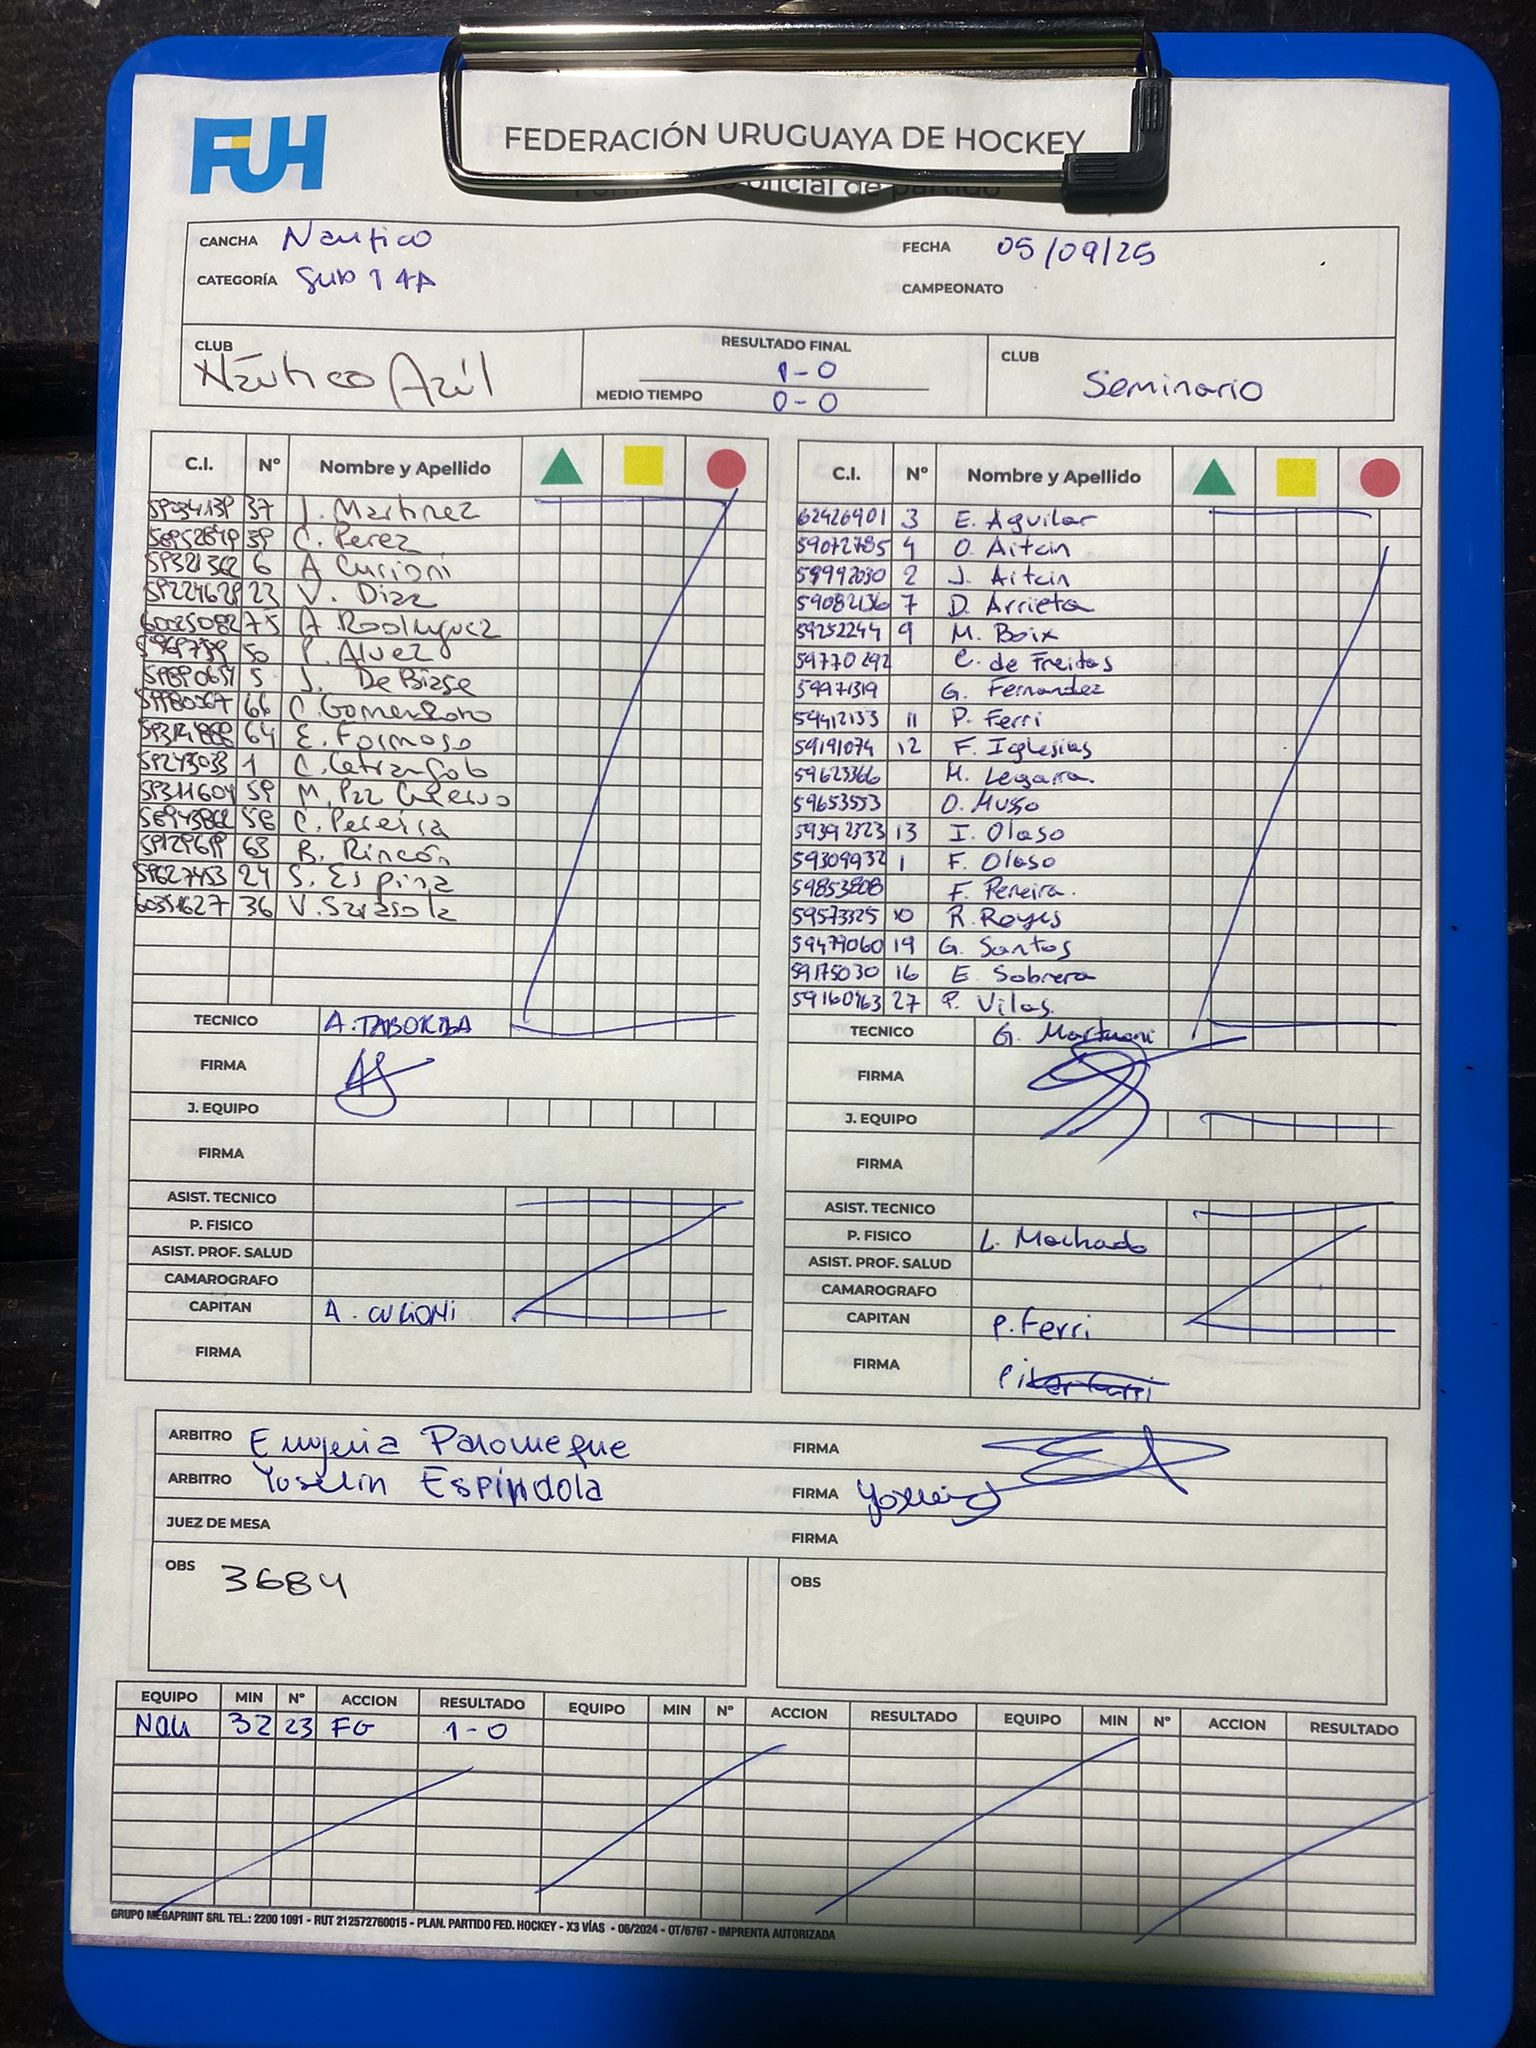 FUH
FEDERACIÓN URUGUAYA DE HOCKEY
oficial de partido
CANCHA Nautico FECHA 05/09/25
CATEGORÍA Sub 14A CAMPEONATO
CLUB RESULTADO FINAL CLUB
Náutico Azúl 1-0 Seminario
MEDIO TIEMPO 0-0
C.I. Nº Nombre y Apellido
37 J. Martinez
39 C. Perez
59321362 6 A Curioni
23 V. Diaz
60025082 75 A. Rodriguez
50 P. Alvez
5 J. De Biase
66 C. Gomensoro
64 E. Formoso
59243033 1
59311604 59 M. Paz
58 C. Pereira
63 B. Rincón
59627453 24 S. Espina
60351627 36 V. Sarasola
TECNICO A. TABORDA
FIRMA
J. EQUIPO
FIRMA
ASIST. TECNICO
P. FISICO
ASIST. PROF. SALUD
CAMAROGRAFO
CAPITAN A. CURIONI
FIRMA
C.I. Nº Nombre y Apellido
62426901 3 E. Aguilar
59072785 4 O. Aitcin
59992030 2 J. Aitcin
59082136 7 D. Arrieta
59252244 9 M. Boix
59770292 C. de Freitas
59971319 G. Fernandez
59412133 11 P. Ferri
59191074 12 F. Iglesias
59623366 M. Legarra.
59653553 O. Musso
59392323 13 I. Olaso
59309932 1 F. Olaso
59853808 F. Pereira.
59573325 10 R. Royes
59479060 19 G. Santos
59175030 16 E. Sobrera
59160963 27 P. Vilas.
TECNICO G.
FIRMA
J. EQUIPO
FIRMA
ASIST. TECNICO
P. FISICO L. Machado
ASIST. PROF. SALUD
CAMAROGRAFO
CAPITAN P. Ferri
FIRMA
ARBITRO Eugenia Palomeque FIRMA
ARBITRO Yoselin Espíndola FIRMA
JUEZ DE MESA FIRMA
OBS 3684 OBS
EQUIPO MIN Nº ACCION RESULTADO EQUIPO MIN Nº ACCION RESULTADO EQUIPO MIN Nº ACCION RESULTADO
Nau 32 23 FG 1-0
GRUPO MEGAPRINT SRL TEL.: 2200 1091 - RUT 212572760015 - PLAN. PARTIDO FED. HOCKEY - X3 VÍAS - 06/2024 - OT/6767 - IMPRENTA AUTORIZADA